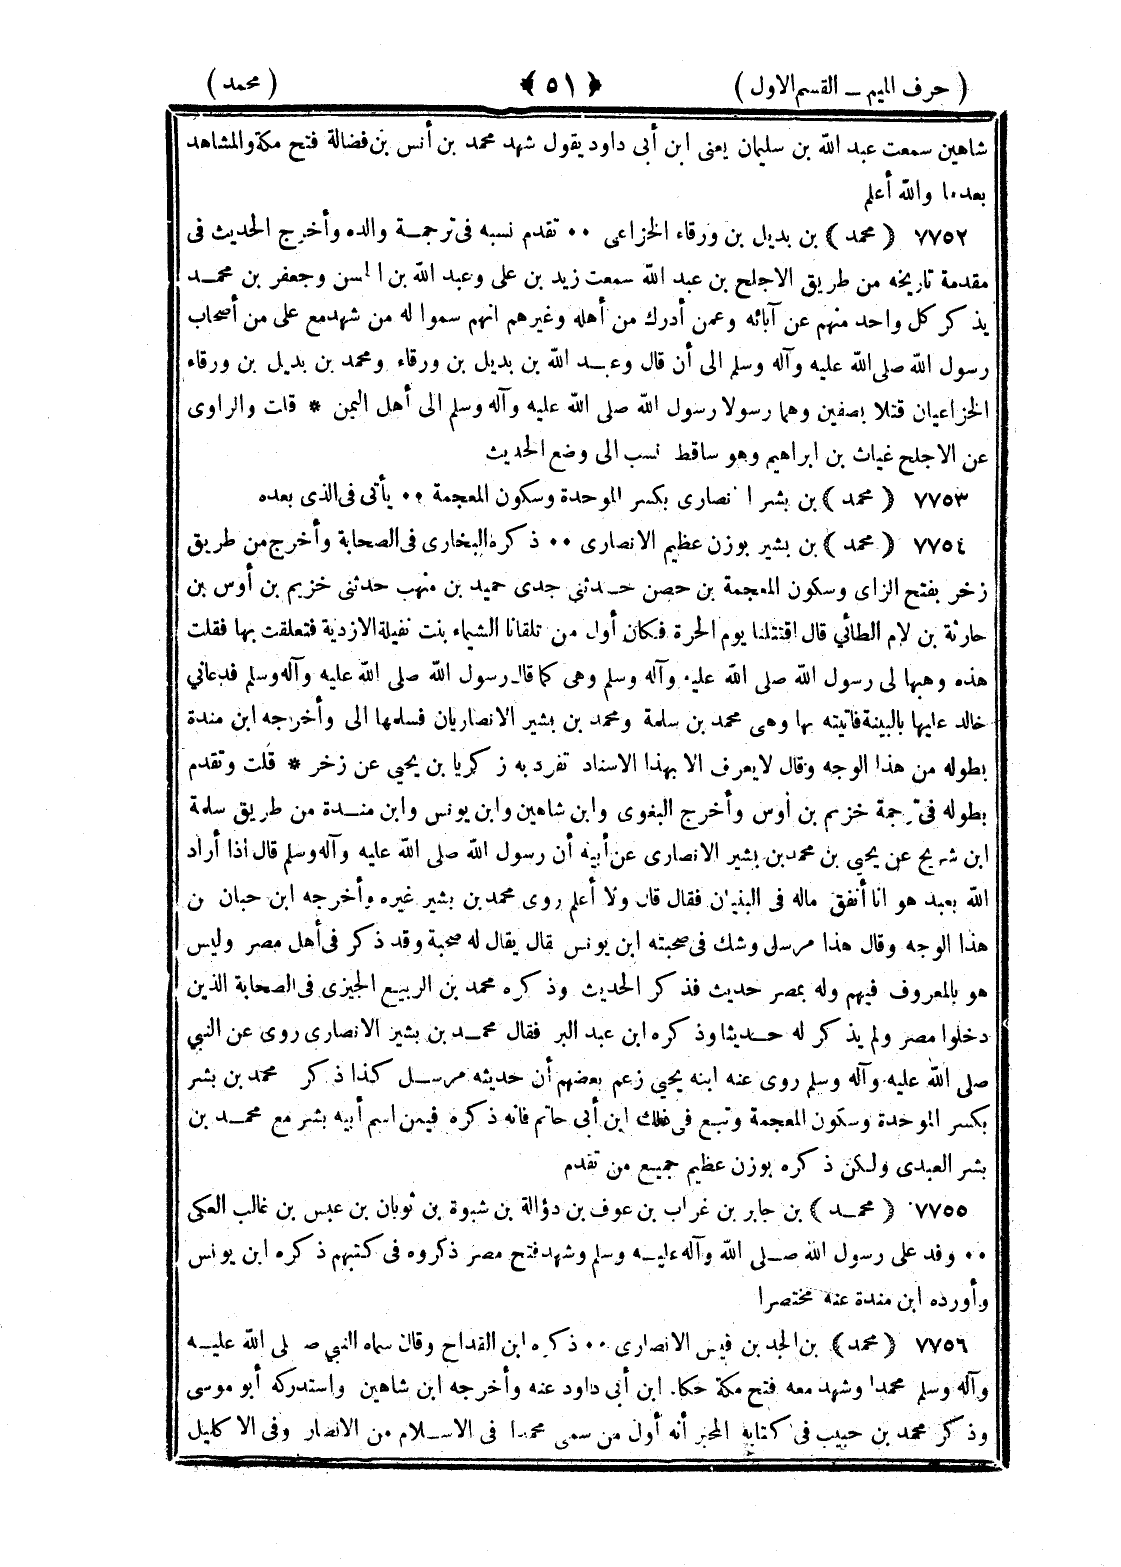 ( حرف الميم ــ القسم الاول ) ﴿ ٥١ ﴾ ( محمد )
شاهين سمعت عبد الله بن سليمان يعنى ابن أبى داود يقول شهد محمد بن أنس بن فضالة فتح مكة والمشاهد
بعدها والله أعلم
٧٧٥٢ ﴿ محمد ﴾ بن بديل بن ورقاء الخزاعى ٠٠ تقدم نسبه فى ترجمة والده وأخرج الحديث فى
مقدمة تاريخه من طريق الاجلح بن عبد الله سمعت زيد بن على وعبد الله بن الحسن وجعفر بن محمد
يذكر كل واحد منهم عن آبائه وعمن أدرك من أهله وغيرهم انهم سموا له من شهد مع على من أصحاب
رسول الله صلى الله عليه وآله وسلم الى أن قال وعبد الله بن بديل بن ورقاء ومحمد بن بديل بن ورقاء
الخزاعيان قتلا بصفين وهما رسولا رسول الله صلى الله عليه وآله وسلم الى أهل اليمن * قلت والراوى
عن الاجلح غياث بن ابراهيم وهو ساقط نسب الى وضع الحديث
٧٧٥٣ ﴿ محمد ﴾ بن بشر الانصارى بكسر الموحدة وسكون المعجمة ٠٠ يأتى فى الذى بعده
٧٧٥٤ ﴿ محمد ﴾ بن بشير بوزن عظيم الانصارى ٠٠ ذكره البخارى فى الصحابة وأخرج من طريق
زخر بفتح الزاى وسكون المعجمة بن حصن حدثنى جدى حميد بن منهب حدثنى خزيم بن أوس بن
حارثة بن لام الطائي قال اقتتلنا يوم الحرة فكان أول من تلقانا الشيماء بنت نفيلة الازدية فتعلقت بها فقلت
هذه وهبها لى رسول الله صلى الله عليه وآله وسلم وهى كما قال رسول الله صلى الله عليه وآله وسلم فدعانى
خالد عليها بالبينة فاتيته بها وهى محمد بن سلمة ومحمد بن بشير الانصاريان فسلمها الى وأخرجه ابن مندة
بطوله من هذا الوجه وقال لايعرف الا بهذا الاسناد تفرد به زكريا بن يحيى عن زخر * قلت وتقدم
بطوله فى ترجمة خزيم بن أوس وأخرج البغوى وابن شاهين وابن يونس وابن مندة من طريق سلمة
ابن شريح عن يحيى بن محمد بن بشير الانصارى عن أبيه أن رسول الله صلى الله عليه وآله وسلم قال اذا أراد
الله بعبد هوانا أنفق ماله فى البنيان فقال قال ولا أعلم روى محمد بن بشير غيره وأخرجه ابن حبان من
هذا الوجه وقال هذا مرسل وشك فى صحبته ابن يونس قال يقال له صحبة وقد ذكر فى أهل مصر وليس
هو بالمعروف فيهم وله بمصر حديث فذكر الحديث وذكره محمد بن الربيع الجيزى فى الصحابة الذين
دخلوا مصر ولم يذكر له حديثا وذكره ابن عبد البر فقال محمد بن بشير الانصارى روى عن النبي
صلى الله عليه وآله وسلم روى عنه ابنه يحيى زعم بعضهم أن حديثه مرسل كذا ذكر محمد بن بشر
بكسر الموحدة وسكون المعجمة وتبع فى ذلك ابن أبى حاتم فانه ذكره فيمن اسم أبيه بشر مع محمد بن
بشر العبدى ولكن ذكره بوزن عظيم جميع من تقدم
٧٧٥٥ ﴿ محمد ﴾ بن جابر بن غراب بن عوف بن دؤالة بن شبوة بن ثوبان بن عبس بن غالب العكى
٠٠ وفد على رسول الله صلى الله وآله عليه وسلم وشهد فتح مصر ذكروه فى كتبهم ذكره ابن يونس
وأورده ابن مندة عنه مختصرا
٧٧٥٦ ﴿ محمد ﴾ بن الجد بن قيس الانصارى ٠٠ ذكره ابن القداح وقال سماه النبي صلى الله عليه
وآله وسلم محمدا وشهد معه فتح مكة حكاه ابن أبى داود عنه وأخرجه ابن شاهين واستدركه أبو موسى
وذكر محمد بن حبيب فى كتابه المحبر أنه أول من سمى محمدا فى الاسلام من الانصار وفى الاكليل